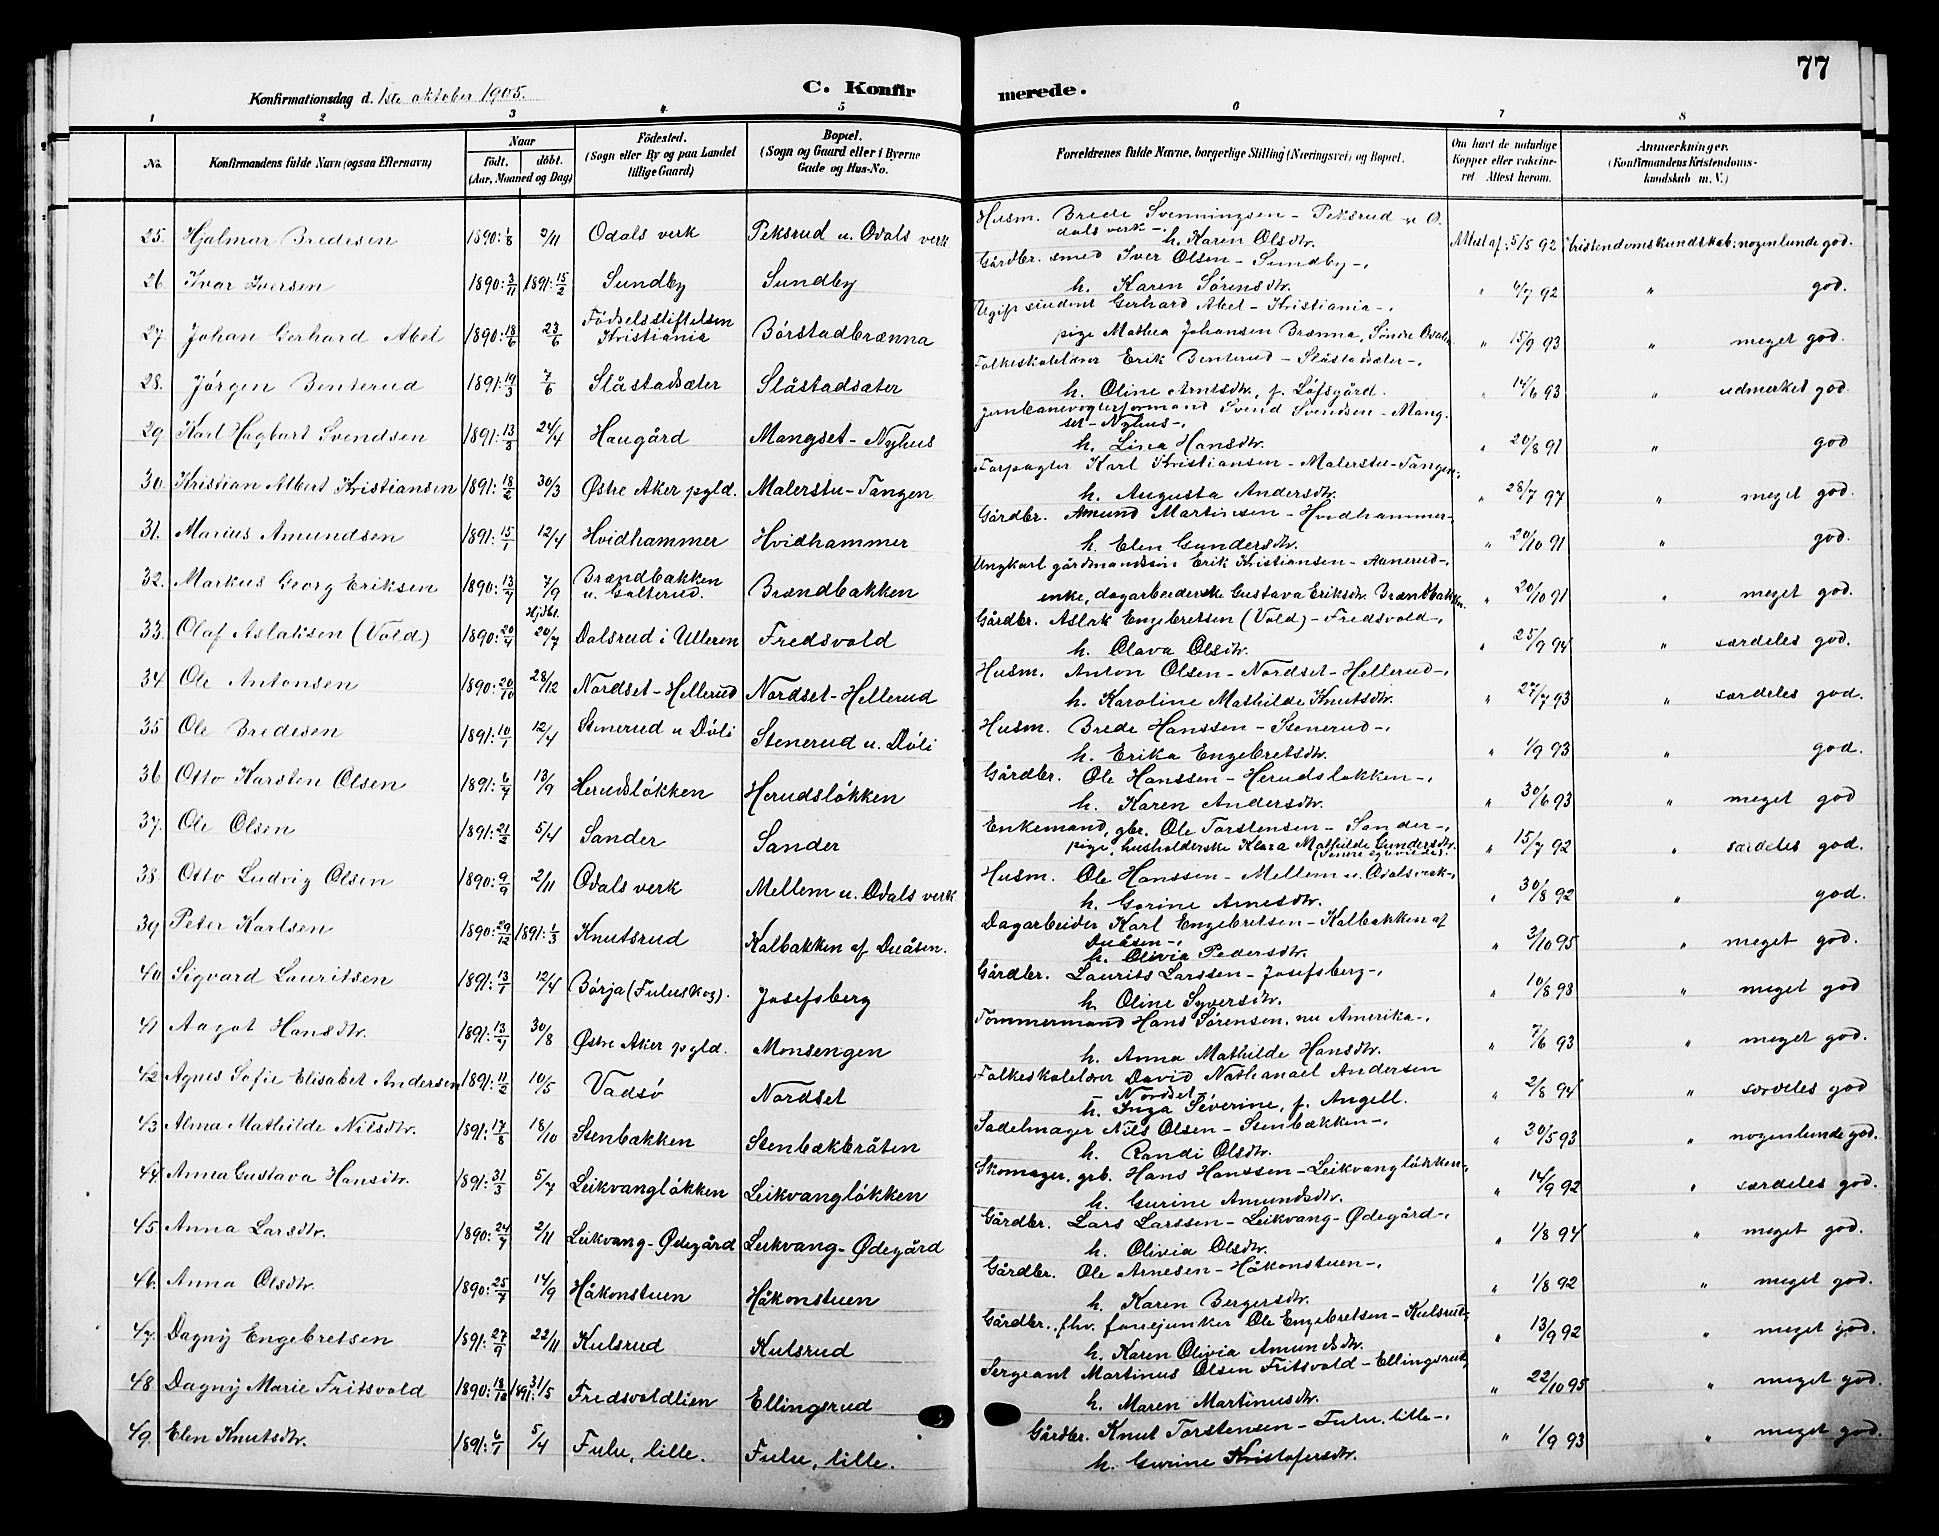 77
Konfirmationsdag d. 1ste oktober 1905.
C. Konfirmerede.
1 2 3 4 5 6 7 8
No. Konfirmandens fulde Navn (ogsaa Efternavn) Naar født. døbt. (Aar, Maaned og Dag) Födested. (Sogn eller By og paa Landet tillige Gaard) Bopæl. (Sogn og Gaard eller i Byerne Gade og Hus-No. Forældrenes fulde Navne, borgerlige Stilling (Næringsvei) og Bopæl. Om havt de naturlige Kopper eller vakcineret. Attest herom. Anmerkninger. (Konfirmandens Kristendomskundskab m. V.)
25. Hjalmar Bredesen 1890: 1/8 2/11 Odals verk Peksrud u. Odals verk Husm. Brede Svenningsen - Peksrud u. Odals verk -, h. Karen Olsdtr. Attest af: 5/5 92 kristendomskundskab: nogenlunde god.
26. Ivar Iversen 1890: 3/11 1891: 15/2 Sundby Sundby Gårdbr. smed Iver Olsen - Sundby -, h. Karen Sørensdtr. " 4/7 92 " god.
27. Johan Gerhard Abel 1890: 18/6 23/6 Födselsstiftelsen Kristiania Börstadbrænna Ugift student Gerhard Abel - Kristiania -, pige Mathea Johansen Brænna, Söndre Odalen " 15/9 93 " meget god.
28. Jörgen Benterud 1891: 19/3 7/6 Slåstadsæter Slåstadsæter Folkeskolelærer Erik Benterud - Slåstadsæter -, h. Oline Arntsdtr., f. Löfsgård. " 14/6 93 " udmerket god.
29. Karl Hagbart Svendsen 1891: 13/3 24/4 Haugård Mangset - Nyhus Jernbanevogterformand Svend Svendsen - Mangset - Nyhus -, h. Lina Hansdtr. " 20/8 91 " god
30. Kristian Albert Kristiansen 1891: 18/2 30/3 Østre Aker pgld. Malerstu - Tangen Forpagter Karl Kristiansen - Malerstu - Tangen -, h. Augusta Andersdtr. " 28/7 97 " meget god.
31. Marius Amundsen 1891: 15/1 12/4 Hvidhammer Hvidhammer Gårdbr. Amund Martinsen - Hvidhammer -, h. Elen Gundersdtr. " 20/10 91 " god.
32. Markus Georg Eriksen 1890: 13/7 7/9 Brændbakken u. Galterud. Brændbakken Ungkarl gårdmandssön Erik Kristiansen - Aanerud -, enke, dagarbeiderske Gustava Eriksdtr. Brændbakken. " 20/10 91 " meget god.
33. Olaf Aslaksen (Vold) 1890: 20/4 Hjdbt. 20/7 Dalsrud i Ulleren Fredsvold Gårdbr. Aslak Engebretsen (Vold) - Fredsvold -, h. Olava Olsdtr. " 25/9 94 " særdeles god.
34. Ole Antonsen 1890: 20/10 28/12 Nordset - Hellerud Nordset - Hellerud Husm. Anton Olsen - Nordset - Hellerud -, h. Karoline Mathilde Knutsdtr. " 27/7 93 " særdeles god.
35. Ole Bredesen 1891: 10/1 12/4 Stenerud u Döli Stenerud u. Döli Husm. Brede Hanssen - Stenerud -, h. Erika Engebretsdtr. " 1/9 93 " god.
36. Otto Karsten Olsen 1891: 6/7 13/9 Herudslökken Herudslökken Gårdbr. Ole Hanssen - Herudsløkken -, h. Karen Andersdtr. " 30/6 93 " meget god
37. Ole Olsen 1891: 21/2 5/4 Sander Sander Enkemand, gbr. Ole Torstensen - Sander -, pige, husholderske Klara Mathilde Gundersdtr. " 15/7 92 " særdeles god.
38. Otto Ludvig Olsen 1890: 9/9 2/11 Odals verk Mellem u. Odals verk Husm. Ole Hanssen - Mellem u. Odalsverk -, h. Gorine Arnesdtr. " 30/8 92 " god.
39. Peter Karlsen 1890: 29/12 1891: 1/3 Knutsrud Kalbakken af Duåsen. Dagarbeider Karl Engebretsen - Kalbakken af Duåsen -, h. Olivia Pedersdtr. " 3/10 95 " meget god.
40. Sigvard Lauritsen 1891: 13/1 12/4 Börja (Fuluskog). Josefsberg Gårdbr. Laurits Larssen - Josefsberg -, h. Oline Syversdtr. " 10/8 93 " meget god
41. Aagot Hansdtr. 1891: 13/7 30/8 Østre Aker pgld. Monsengen Tømmermand Hans Sørensen, nu Amerika -, h. Anna Mathilde Hansdtr. " 7/6 93 " meget god.
42. Agnes Sofie Elisabet Andersen 1891: 11/2 10/5 Vadsø Nordset Folkeskolelærer David Nathanael Andersen - Nordset -, h. Inga Severine, f. Angell. " 2/8 94 " særdeles god
43. Alma Mathilde Nilsdtr. 1891: 17/8 18/10 Stenbækken Stenbækbråten Sadelmager Nils Olsen - Stenbækken -, h. Randi Olsdtr. " 30/5 93 " nogenlunde god.
44. Anna Gustava Hansdtr. 1891: 31/3 5/7 Leikvangløkken Leikvangløkken Skomager, grb. Hans Hanssen - Leikvangløkken -, h. Gurine Amundsdtr. " 14/9 92 " særdeles god.
45. Anna Larsdtr. 1890: 24/7 2/11 Leikvang - Ødegård Leikvang - Ødegård Gårdbr. Lars Larssen - Leikvang - Ødegård -, h. Olivia Olsdtr. " 1/8 94 " meget god.
46. Anna Olsdtr. 1890: 25/7 14/9 Håkonstuen Håkonstuen Gårdbr. Ole Arnesen - Håkonstuen -, h. Karen Bergersdtr. " 1/8 92 " meget god.
47. Dagny Engebretsen 1891: 27/9 22/11 Kulsrud Kulsrud Gårdbr., fhv. fanejunker Ole Engebretsen - Kulsrud -, h. Karen Olivia Amundsdtr. " 13/9 92 " meget god.
48. Dagny Marie Fritsvold 1890: 18/12 1891: 31/5 Fredsvoldlien Ellingsrud Sergeant Martinus Olsen Fritsvold - Ellingsrud, h. Maren Martinusdtr. " 22/10 95 " meget god.
49. Elen Knutsdtr. 1891: 6/1 5/4 Fulu, lille. Fulu, lille. Gårdbr. Knut Torstensen - Fulu, lille -, h. Gurine Kristofersdtr. " 1/9 93 " meget god.